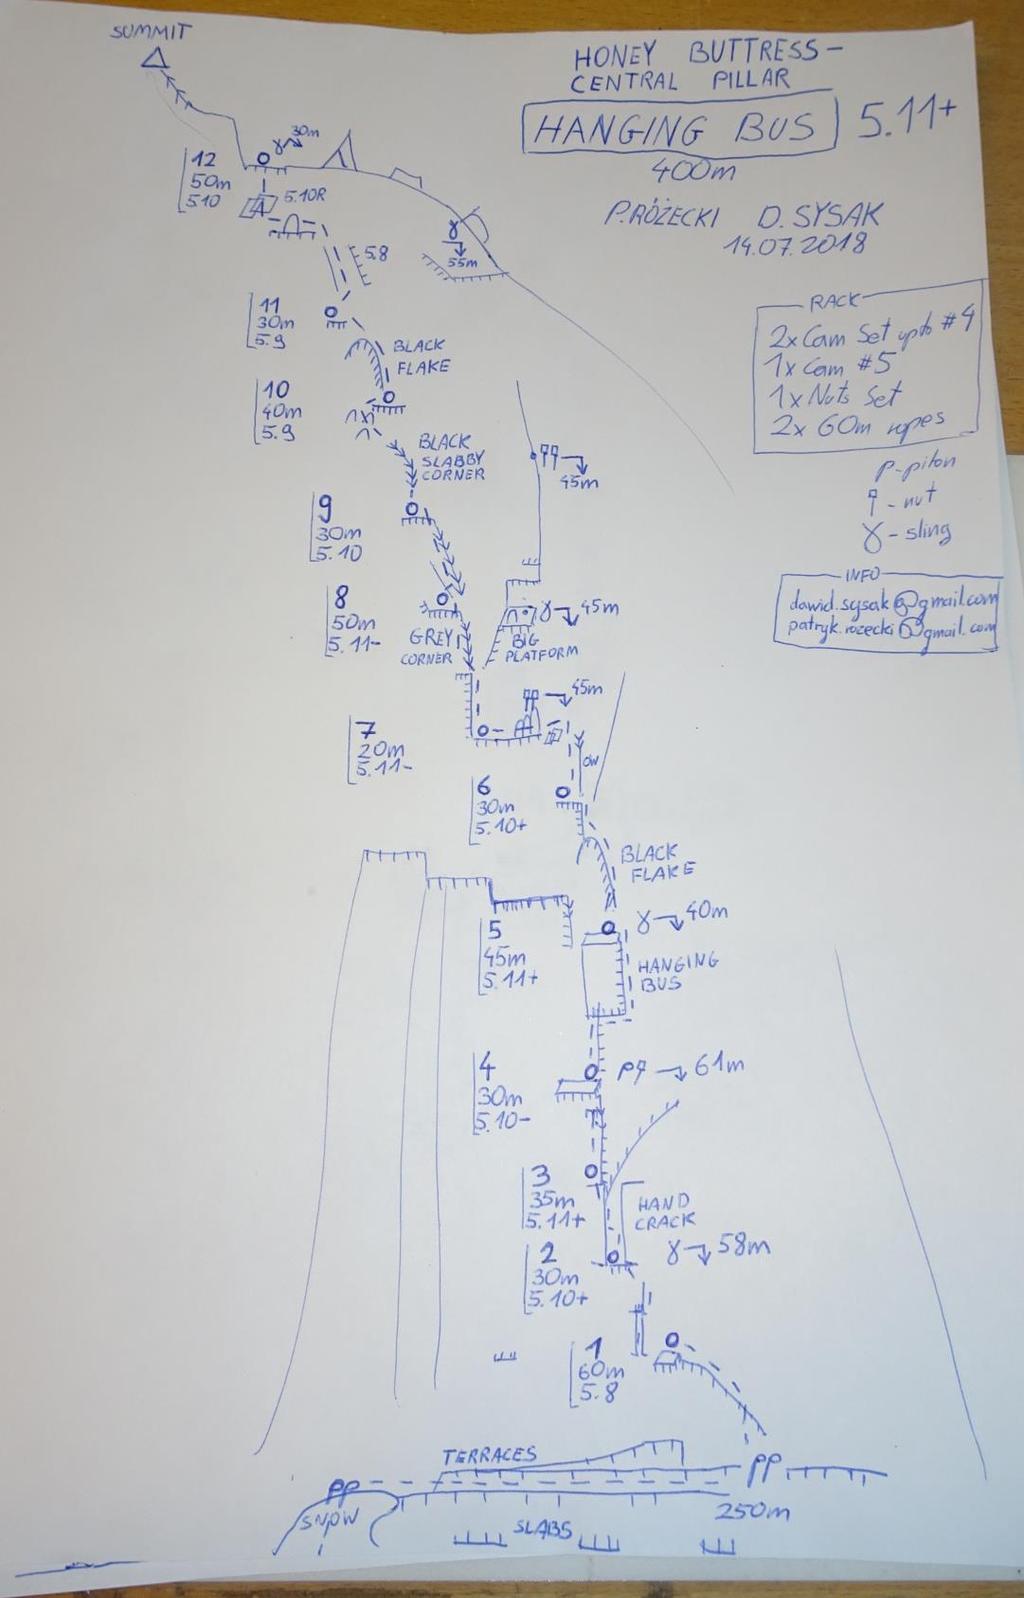 SUMMIT
HONEY BUTTRESS-
CENTRAL PILLAR
HANGING BUS 5.11+
400m
P.RÓŻECKI D.SYSAK
14.07.2018
RACK
2x Cam Set upto #4
1x Cam #5
1x Nuts Set
2x 60m ropes
p-piton
- nut
- sling
INFO
dawid.sysak@gmail.com
patryk.rozecki@gmail.com
30m
12
50m
5.10
5.10R
5.8
55m
11
30m
5.9
BLACK
FLAKE
10
40m
5.9
BLACK
SLABBY
CORNER
45m
9
30m
5.10
8
50m
5.11-
GREY
CORNER
45m
BIG
PLATFORM
45m
7
20m
5.11-
OW
6
30m
5.10+
BLACK
FLAKE
40m
5
45m
5.11+
HANGING
BUS
4
30m
5.10-
p 61m
3
35m
5.11+
HAND
CRACK
58m
2
30m
5.10+
1
60m
5.8
TERRACES
pp
pp
SNOW
250m
SLABS